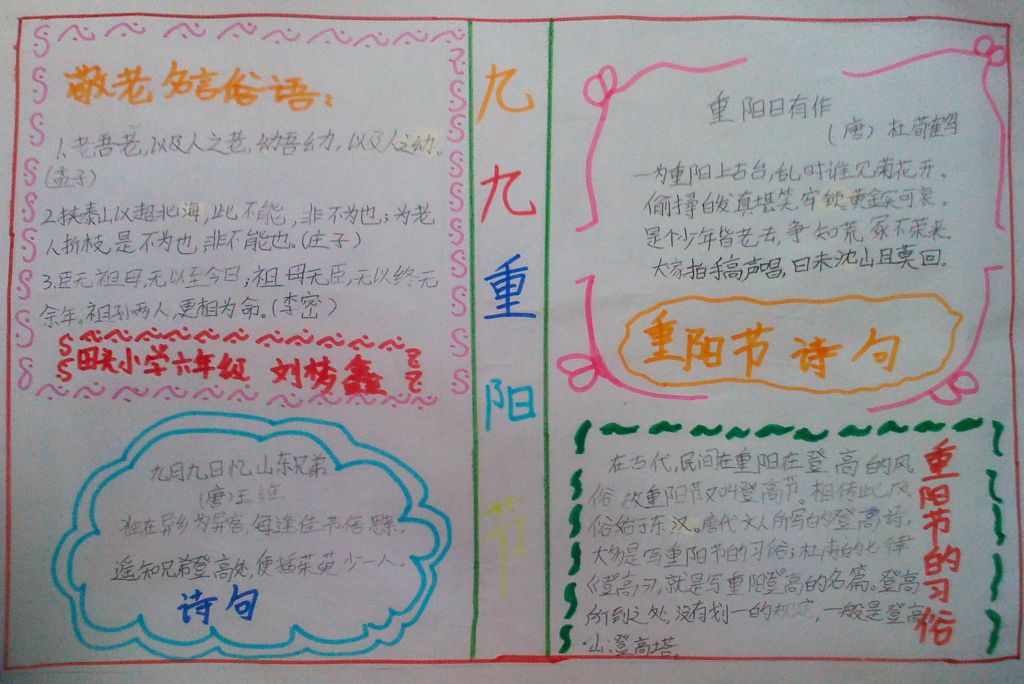 敬老名言俗语:
1、老吾老,以及人之老,幼吾幼,以及人之幼。
(孟子)
2.扶泰山以超北海,此不能,非不为也;为老
人折枝,是不为也,非不能也。(庄子)
3.臣无祖母,无以至今日;祖母无臣,无以终无
余年。祖孙两人,更相为命。(李密)
田夫小学六年级 刘梦鑫
九月九日忆山东兄弟
(唐)王维
独在异乡为异客,每逢佳节倍思亲。
遥知兄弟登高处,便插茱萸少一人。
诗句
九九重阳节
重阳日有作
(唐)杜荀鹤
一为重阳上古台,乱时谁见菊花开。
偷捋白发真堪笑,牢锁黄金实可哀。
是个少年皆老去,争知荒冢不荣来。
大家拍手高声唱,日未沈山且莫回。
重阳节诗句
重阳节的习俗
在古代,民间在重阳在登高的风
俗,故重阳节又叫登高节。相传此风
俗始于东汉。唐代文人所写的登高诗,
大多是写重阳节的习俗;杜甫的七律
《登高》,就是写重阳登高的名篇。登高
所到之处,没有划一的规定,一般是登高
山、登高塔。